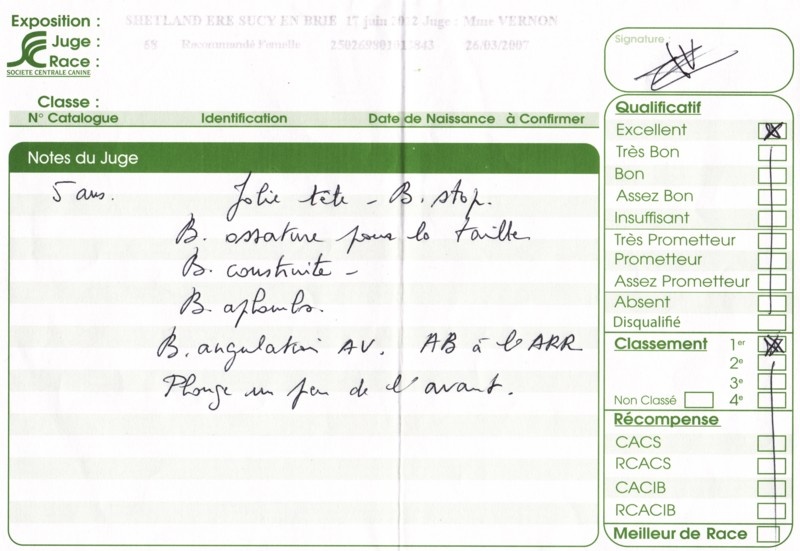 Exposition : SHETLAND ERE SUCY EN BRIE 17 juin 2012 Juge : Mme VERNON
Juge : 68 Recommandé Femelle 26/03/2007
Race :
SOCIETE CENTRALE CANINE
Classe :
N° Catalogue Identification Date de Naissance à Confirmer
Notes du Juge
5 ans. Jolie tête - B. stop.
B. ossature pour la taille
B. construite -
B. aplombs.
B. angulation AV. AB à l'ARR
Plonge un peu de l'avant.
Signature :
Qualificatif
Excellent
Très Bon
Bon
Assez Bon
Insuffisant
Très Prometteur
Prometteur
Assez Prometteur
Absent
Disqualifié
Classement 1er
2e
3e
Non Classé 4e
Récompense
CACS
RCACS
CACIB
RCACIB
Meilleur de Race